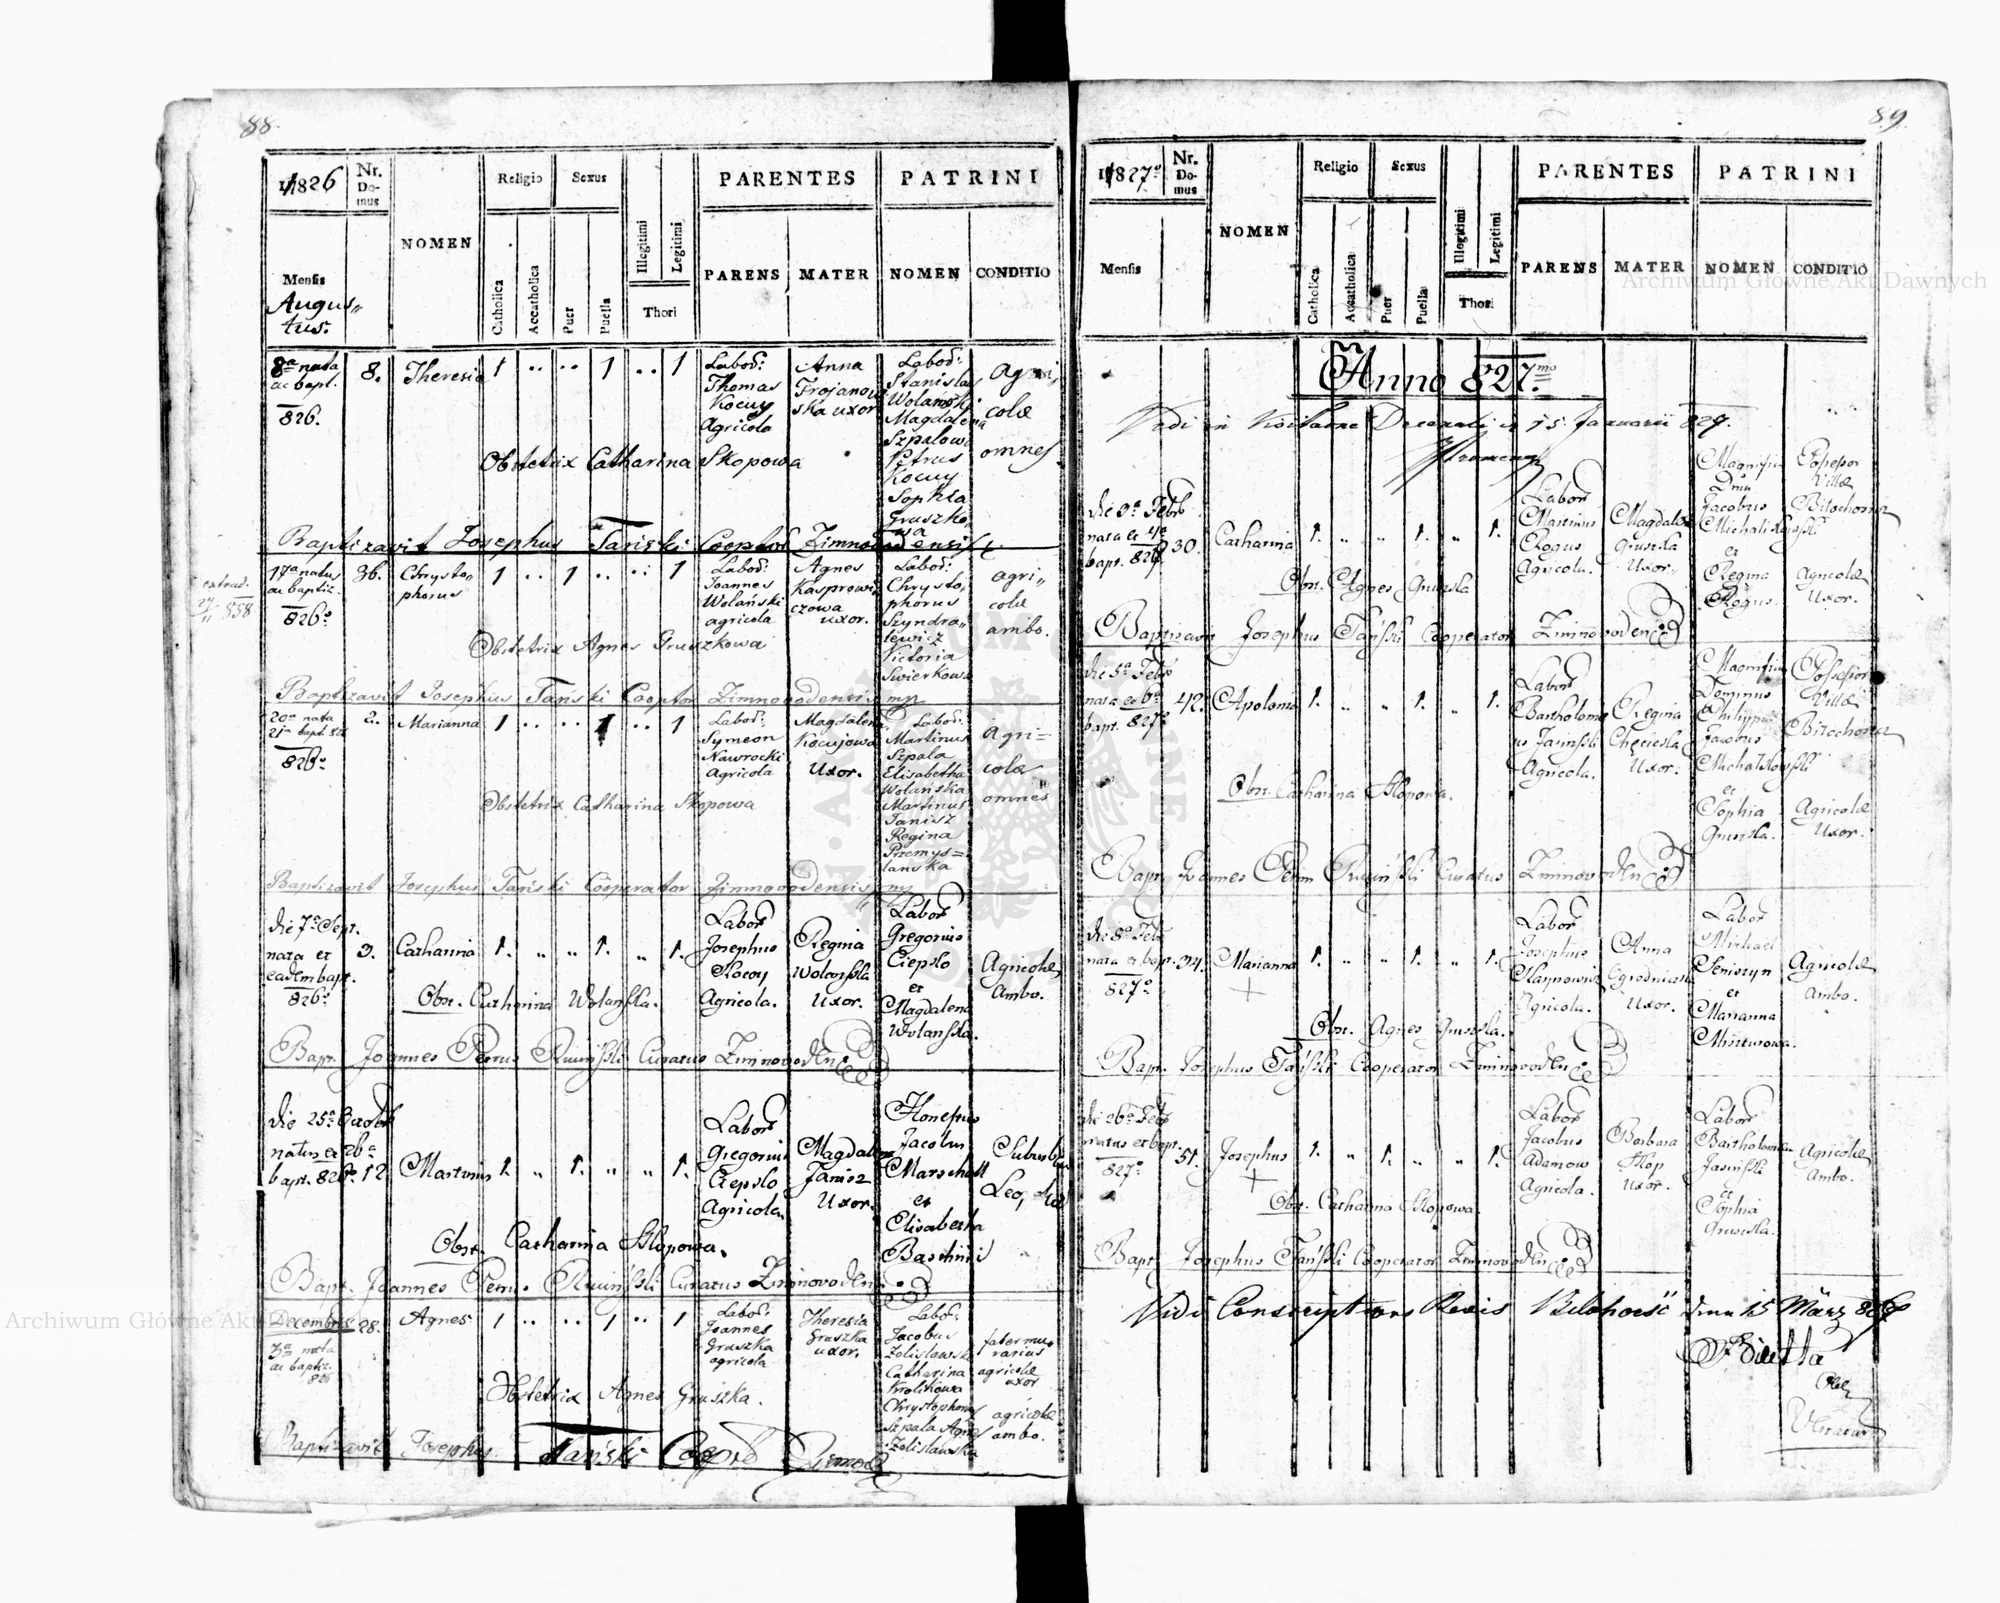 88.
1826
Nr. Do- mus
NOMEN
Religio
Sexus
PARENTES
PATRINI
Mensis
Catholica
Accatholica
Puer
Puella
Illegitimi
Legitimi
Thori
PARENS
MATER
NOMEN
CONDITIO
Augus„
tus.
8a nata
ac bapt.
826.
8.
Theresia
1
..
..
1
..
1
Labor:
Thomas
Kocuy
Agricola
Anna
Trojanow
ska uxor
Labor:
Stanislas
Wolański
Magdalena
Szpalowa
Petrus
Kocuy
Sophia
Gruszko„
wa
Agri
colæ
omnes
Obstetrix Catharina Skopowa
Baptizavit Josephus Tański Cooptor Zimnovodensis
extrad.
858
17a natus
ac baptiz.
826o
36.
Chrysto„
phorus
1
..
1
..
..
1
Labor:
Joannes
Wolański
agricola
Agnes
Kasprowi
czowa
uxor.
Labor:
Chrysto„
phorus
Szyndra„
lewicz
Victoria
Swierkowa
agri„
colæ
ambo.
Obstetrix Agnes Gruszkowa
Baptizavit Josephus Tański Cooptor Zimnovodensis mp
20a nata
21a bapt. 826
826o
2.
Marianna
1
..
..
1
..
1
Labor:
Symeon
Nawrocki
Agricola
Magdalena
Kocujowa
Uxor.
Labor:
Martinus
Szpala
Elisabetha
Wolańska
Martinus
Janisz
Regina
Przemys=
lańska
Agri=
colæ
omnes
Obstetrix Catharina Skopowa
Baptizavit Josephus Tański Cooperator Zimnovodensis mp
die 7a Sept.
nata et
eadem bapt.
826o
3.
Catharina
1.
„
„
1.
„
1.
Labor
Josephus
Kocoy
Agricola.
Regina
Wolańska
Uxor.
Labor
Gregorius
Ciepło
et
Magdalena
Wolańska.
Agricolæ
Ambo.
Obst. Catharina Wolańska.
Bapt. Joannes Petrus Curatus Zimnovoden
die 25a Octob
natus et 26a
bapt. 826o
12.
Martinus
1.
„
1.
„
„
1.
Labor
Gregorius
Ciepło
Agricola.
Magdalena
Janisz
Uxor.
Honestus
Jacobus
Marschall
et
Elisabetha
Obst. Catharina Skopowa.
Bapt. Joannes Petrus Curatus Zimnovoden
Decembris
3a nata
ac baptiz.
826
28.
Agnes
1
..
..
1
..
1
Labor:
Joannes
Gruszka
agricola
Theresia
Gruszka
uxor.
Labor:
Jacobus
Zelislawski
Catharina
Krolikowa
Chrystophorus
Szpala Agnes
Zelislawska
faber mu„
rarius
agricolæ
uxor
agricolæ
ambo.
Obstetrix Agnes Gruszka.
Baptizavit Josephus Tański
89.
1827o
Nr. Do- mus
NOMEN
Religio
Sexus
PARENTES
PATRINI
Mensis
Catholica
Accatholica
Puer
Puella
Illegitimi
Legitimi
Thori
PARENS
MATER
NOMEN
CONDITIO
Anno 827mo
Vidi in Visitatne Decanali d 15 Januarii 827.
die 3a Febr
nata et 4a
bapt. 827
30.
Catharina
1.
„
„
1.
„
1.
Labor
Martinus
Rogus
Agricola.
Magdalena
Gruszka
Uxor.
Magnificus
Dnus
Jacobus
et
Regina
Rogus.
Possessor
Villæ
Agricolæ
Uxor.
Obst. Agnes Gruszka
Baptisavit Josephus Tański Cooperator Zimnovoden
die 5a Febr
nata et 6a
bapt. 827o
42.
Apolonia
1.
„
„
1.
„
1.
Labor
Bartholomæ
us Jasinski
Agricola.
Regina
Uxor.
Magnificus
Dominus
Philippus
Jacobus
Michałowski
et
Sophia
Gruszka.
Possessor
Villæ
Agricolæ
Uxor.
Obst. Catharina Skopowa.
Bapt. Joannes Petrus Curatus Zimnovoden
die 8a Febr
nata et bapt.
827o
34.
Marianna
1.
„
„
1.
„
1.
Labor
Josephus
Karpowicz
Agricola.
Anna
Ogrodnicska
Uxor.
Labor
Michael
Seniszyn
et
Marianna
Agricolæ
Ambo.
Obst. Agnes Gruszka.
Bapt. Josephus Tański Cooperator Zimnovoden
die 26a Febr
natus et bapt.
827o
51.
Josephus
1.
„
1.
„
„
1.
Labor
Jacobus
Adamow
Agricola.
Barbara
Skop
Uxor.
Labor
Bartholomæus
Jasinski
et
Sophia
Gruszka.
Agricolæ
Ambo.
Obst. Catharina Skopowa.
Bapt. Josephus Tański Cooperator Zimnovoden
Vidi Conscriptions Revis Bilohorść 15 März
Archiwum Główne Akt Dawnych
Archiwum Główne Akt Dawnych